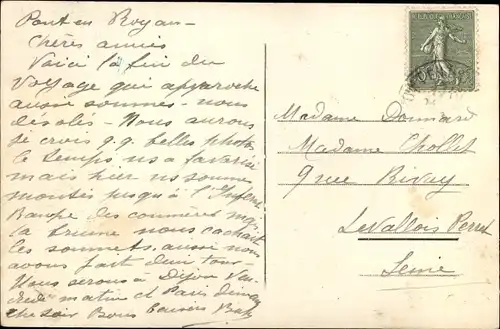 Pont en Royans
Chères amies
Voici la fin du
voyage qui approche
aussi sommes-nous
désolés - Nous aurons
je crois q.q. belles photos
le temps ns a favorisé
mais hier ns somme
montés jusqu'à l'
des
la brume nous cachait
les sommets, aussi nous
avons fait demi tour -
Nous serons à Dijon Ven-
dredi matin et Paris diman-
che soir Bons baisers
REPUBLIQUE FRANÇAISE
Madame
Madame Chollet
9 rue Rivay
Levallois Perret
Seine